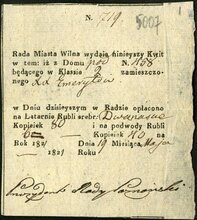 N. 719.
5007
Rada Miasta Wilna wydaie ninieyszy Kwit
w tem: iż z Domu pod N. 488
będącego w Klassie 2 zamieszczo-
nego XX Emerytów
w Dniu dzisieyszym w Radzie opłacono
na Latarnie Rubli srebr: Dwanaście
Kopieiek 80 i na podwody Rubli
6 Kopieiek 40 na
Rok 182 Dnia 19 Miesiąca Maja
182 Roku
Prezydent Rady